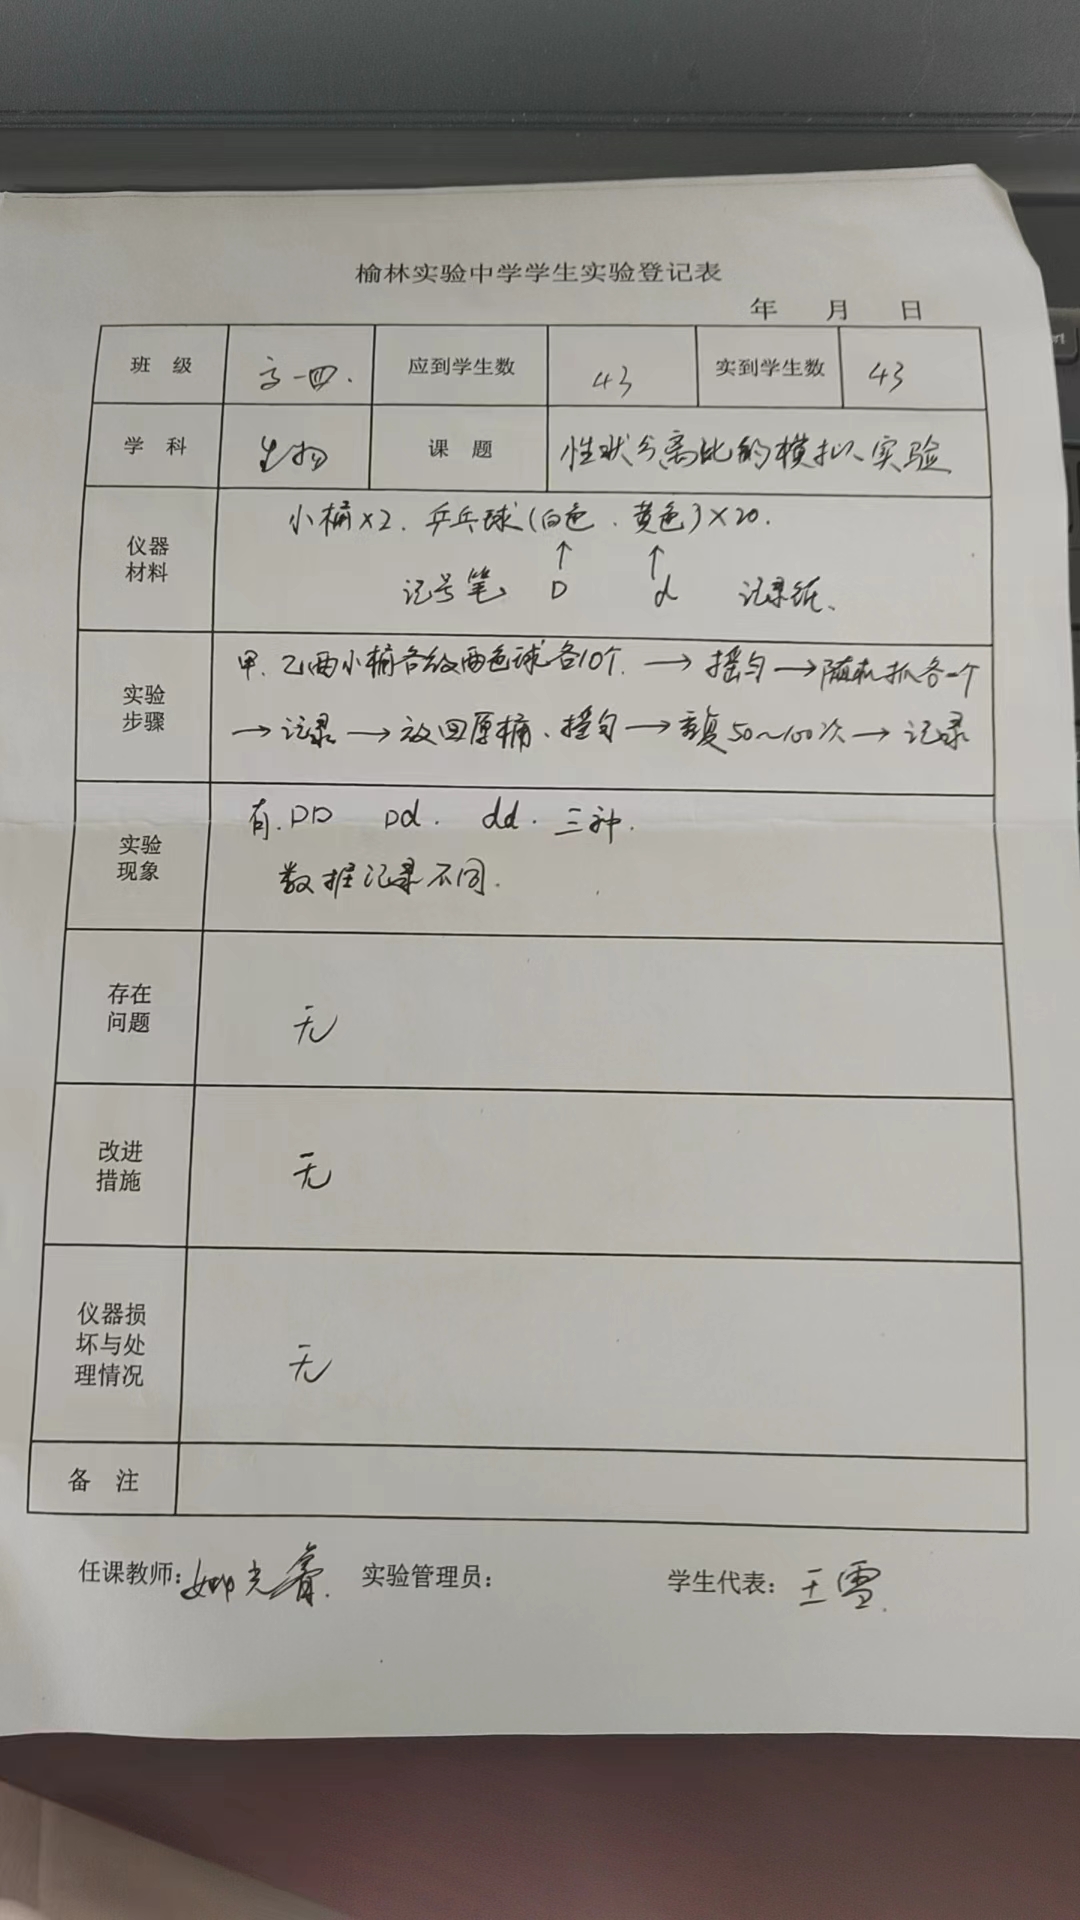 榆林实验中学学生实验登记表
年 月 日
班 级 高一四. 应到学生数 43 实到学生数 43
学 科 生物 课 题 性状分离比的模拟实验
仪器
材料
小桶×2. 乒乓球(白色、黄色)×20.
↑ ↑
记号笔 D d 记录纸.
实验
步骤
甲、乙两小桶各放两色球各10个. → 摇匀 → 随机抓各一个
→ 记录 → 放回原桶、摇匀 → 重复50~100次 → 记录
实验
现象
有. DD Dd. dd. 三种.
数据记录不同.
存在
问题
无
改进
措施
无
仪器损
坏与处
理情况
无
备 注
任课教师: 实验管理员: 学生代表: 王雪.